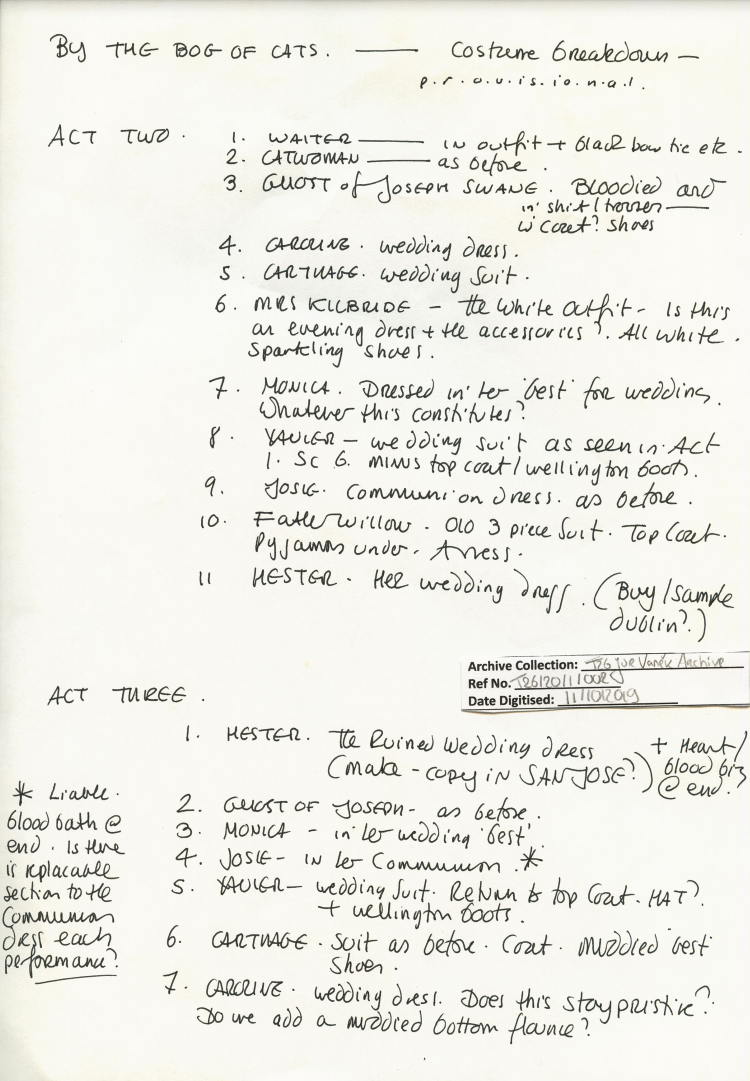 BY THE BOG OF CATS. — Costume breakdown —
p.r.o.v.i.s.i.o.n.a.l.
ACT TWO.
1. WAITER — in outfit + black bow tie etc.
2. CATWOMAN — as before.
3. GHOST of JOSEPH SWANE. Bloodied and
in shirt/trouser —
w' coat? shoes
4. CAROLINE. wedding dress.
5. CARTHAGE. wedding suit.
6. MRS KILBRIDE – the white outfit – Is this
an evening dress + the accessories?. All white.
Sparkling shoes.
7. MONICA. Dressed in her 'best' for wedding.
Whatever this constitutes?
8. XAVIER – wedding suit as seen in Act
1. Sc 6. MINUS top coat/wellington boots.
9. JOSIE. Communion dress. as before.
10. Father Willow. OLD 3 piece Suit. Top Coat.
Pyjamas under.
11 HESTER. Her wedding dress. (Buy/sample
dublin?.)
Archive Collection: T26 Joe Vaněk Archive
Ref No.
Date Digitised: 11/10/2019
ACT THREE.
1. HESTER. The Ruined Wedding dress
(make – copy in SAN JOSE?)
+ Heart/
blood big
@ end.?
2. GHOST OF JOSEPH – as before.
3. MONICA – in her wedding 'best'.
4. JOSIE – in her Communion. *
5. XAVIER – wedding suit. Return to top Coat. HAT?.
+ wellington boots.
6. CARTHAGE. Suit as before. Coat. Muddied 'best'
Shoes.
7. CAROLINE. wedding dress. Does this stay pristine?.
Do we add a muddied bottom flounce?
* Liable.
blood bath @
end. Is there
is replacable
section to the
Communion
dress each
performance?